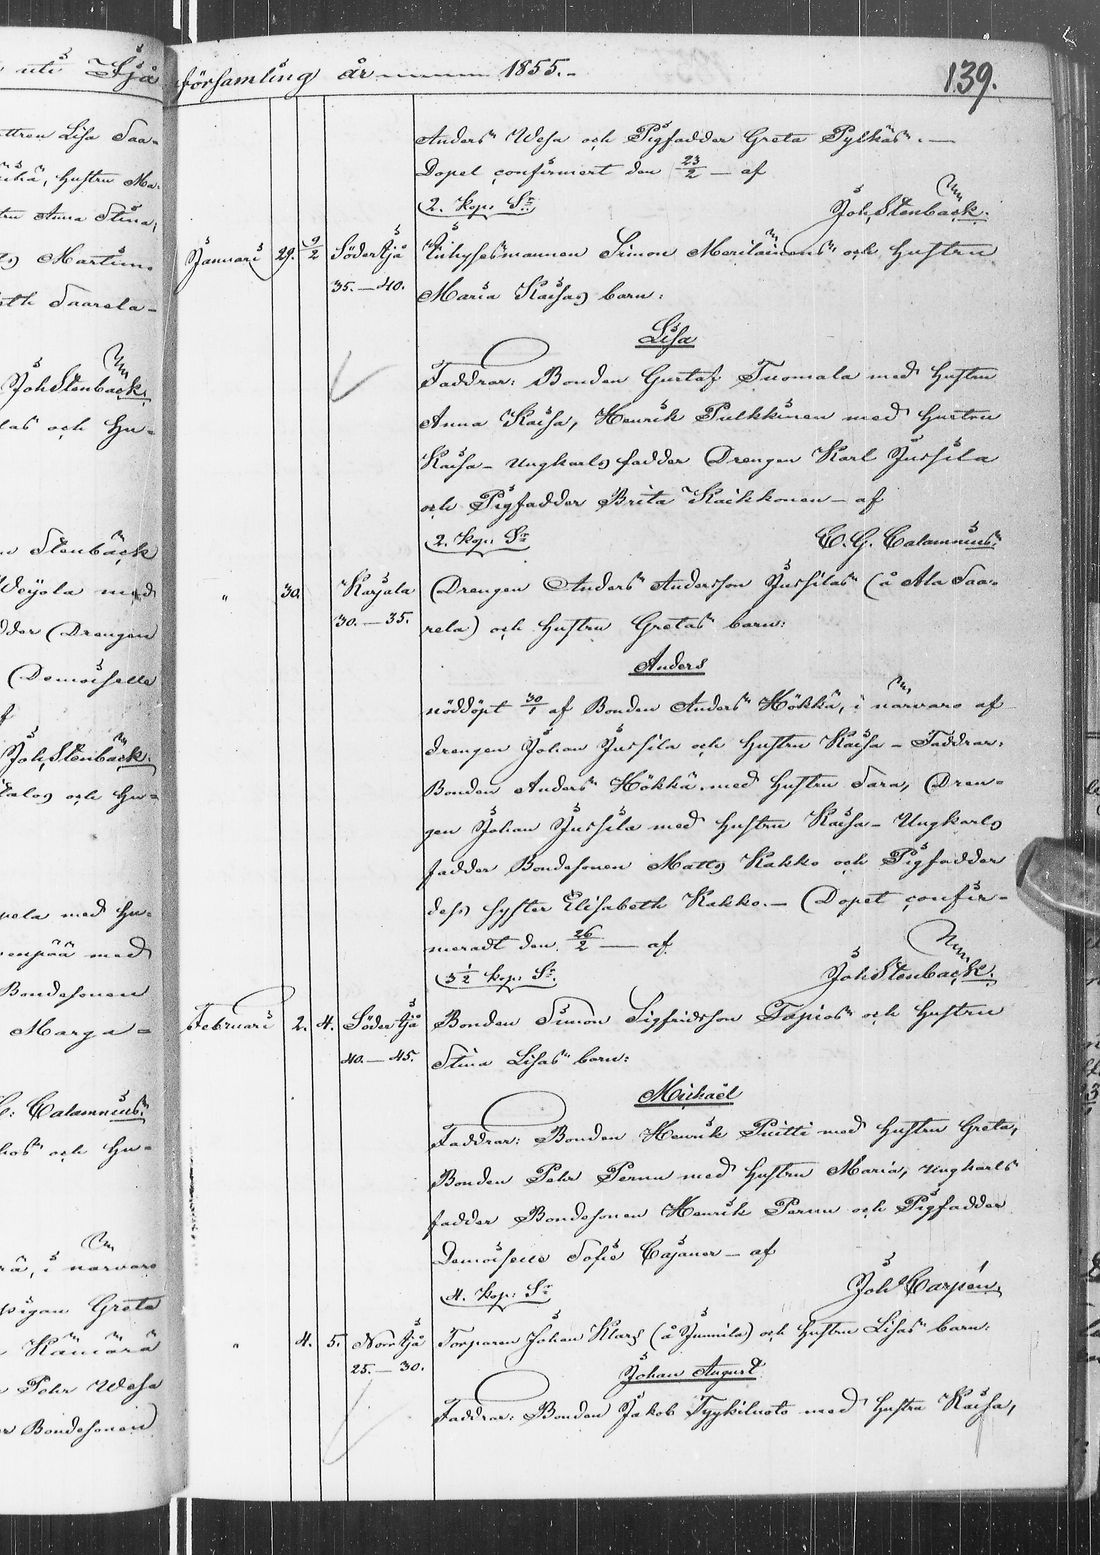 uti Ijå
församling år 1855.
139.
ttren Lisa Saa-
hustru Ma-
tru Anna Stina,
Martin
Saarela-
Joh Stenbäck.
las och hu-
Stenbäck
Veijola med
dder Drengen
Demoiselle
Joh. Stenbäck.
talos och hu-
pela med hu-
enpää med
Bondesonen
Marga-
Calamnius.
hos och hu-
rä, i närvaro
pigan Greta
Kämärä
Pehr Wesa
Bondesonen
Anders Wesa och Pigfadder Greta Pylkäs.
Dopet confirmert den 23/2 — af
2. kop: Sr Joh. Stenbäck.
Januari 29. 9/2 Söder Ijå Inhysesmannen Simon Meriläinens och hustru
35.—40. Maria Kaisas barn:
Lisa
Faddrar: Bonden Gustaf Tuomala med hustru
Anna Kaisa, Henrik Pulkkinen med hustru
Kaisa – Ungkarls fadder Drengen Karl Jussila
och Pigfadder Brita Kaikkonen – af
2. kop: Sr C. G. Calamnius.
" 30. Karjala Drengen Anders Andersson Jussilas (å Ala Saa-
30.—35. rela) och hustru Gretas barn:
Anders
nöddöpt 30/1 af Bonden Anders Hökkä, i närvaro af
drengen Johan Jussila och hustru Kaisa – Faddrar:
Bonden Anders Hökkä med hustru Sara, Dren-
gen Johan Jussila med hustru Kaisa – Ungkarls
fadder Bondesonen Matts Kakko och Pigfadder
dess syster Elisabeth Kakko. – Dopet confir-
meradt den 26/2 — af
3 1/2 kop: Sr. Joh Stenbäck.
Februari 2. 4. Söder Ijå Bonden Simon Sigfridsson Tapios och hustru
40.—45. Stina Lisas barn:
Michaël
Faddrar: Bonden Henrik Puitti med hustru Greta,
Bonden Pehr Pernu med hustru Maria, ungkarls
fadder Bondesonen Henrik Pernu och Pigfadder
Demoiselle Sofie Cajaner – af
4. kop: Sr Joh Carpén.
" 4. 5. Norr Ijå Torparen Johan Klars (å Junnila) och hustru Lisas barn:
25.—30. Johan August
Faddrar: Bonden Jakob Tyykiluoto med hustru Kaisa,